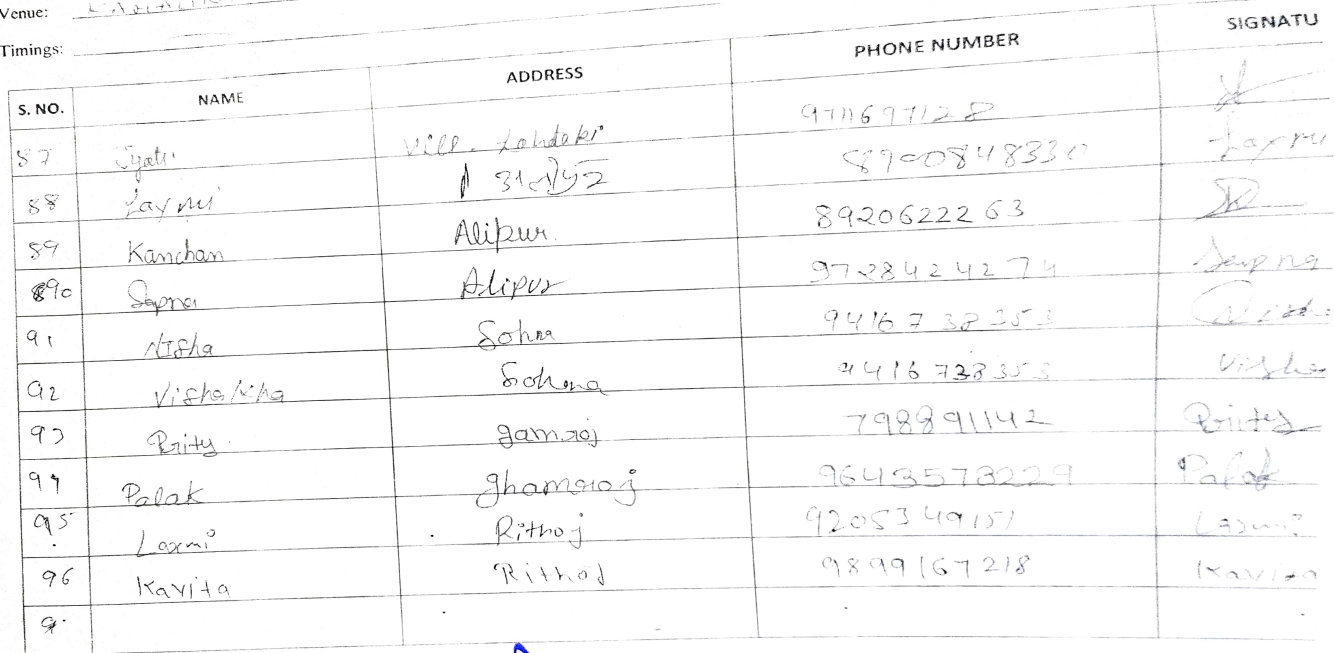 Venue:
Timings:
S. NO. NAME ADDRESS PHONE NUMBER SIGNATU
87 Jyoti Vill. 9711697128
88 Laxmi अलीपुर 8900848330 Laxmi
89 Kanchan Alipur 8920622263
90 Sapna Alipur 9728424274 Sapna
91 Nisha Sohna 9416738353 Nisha
92 Vishakha Sohena 9416738353 Visha
93 Prity gamroj 798891142 Prity
94 Palak ghamroj 9643573229 Palak
95 Laxmi Rithoj 9205349151 Laxmi
96 Kavita Rithoj 9899167218 Kavita
9